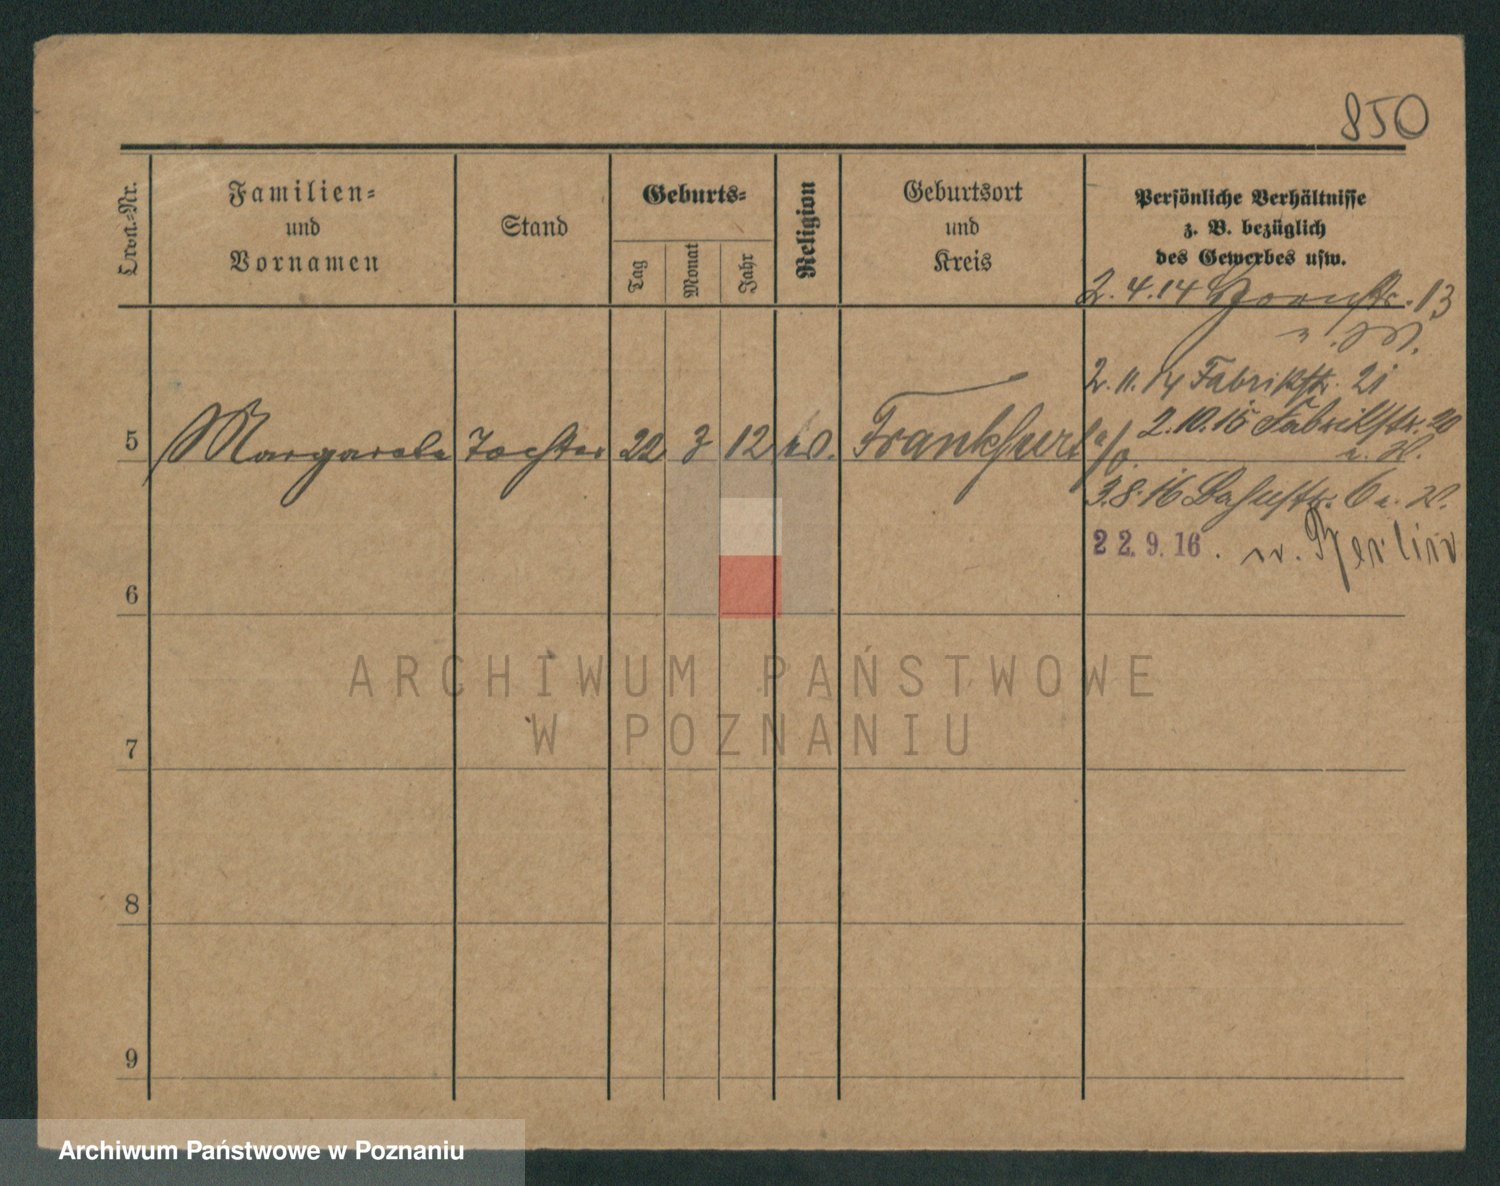 850
Ordn.-Nr.
Familien-
und
Vornamen
Stand
Geburts-
Tag
Monat
Jahr
Religion
Geburtsort
und
Kreis
Persönliche Verhältnisse
z. B. bezüglich
des Gewerbes usw.
2. 4. 14 13
2. 11. 14 Fabrikstr. 21
5 Margarete Tochter 22 3 12 Frankfurt a/o 2. 10. 15 Fabrikstr. 20
3. 8. 16 6
22. 9. 16. n. Berlin
6
7
8
9
ARCHIWUM PAŃSTWOWE
W POZNANIU
Archiwum Państwowe w Poznaniu